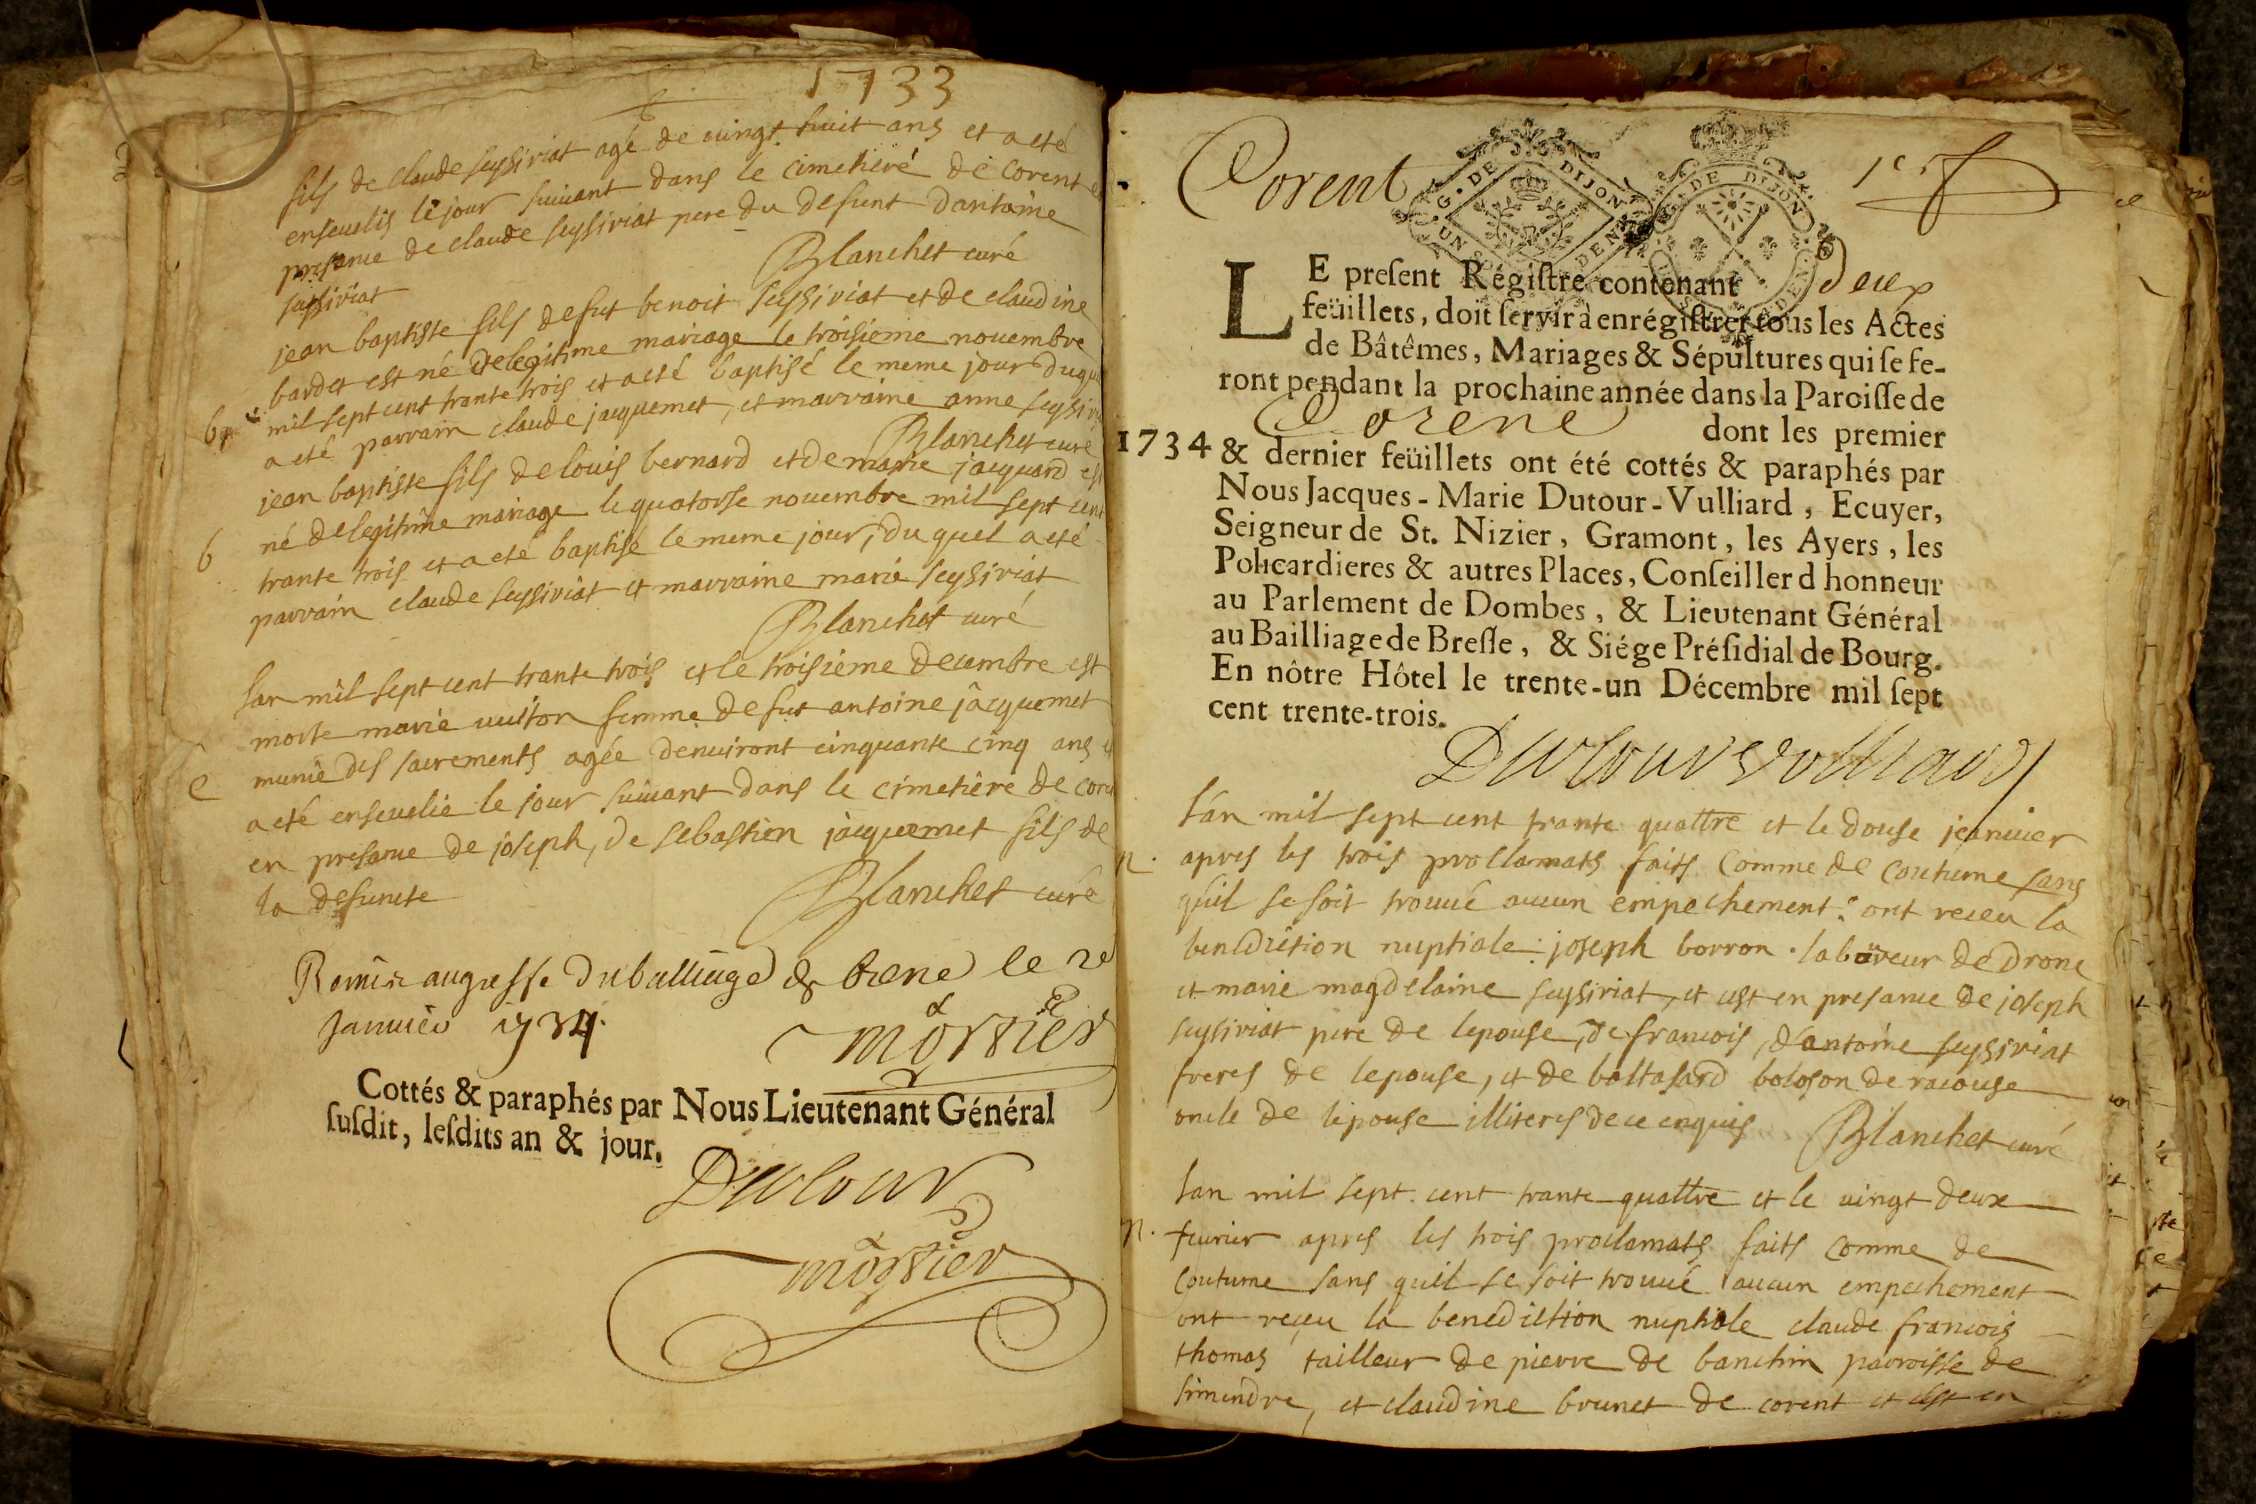 1733
fils de claude seysiriat agé de vingt huit ans et a eté
enseuelis le jour suiuant dans le cimetieré de corent e
presance de claude seysiriat pere du defunt dantoine
seysiriat
Blanchet curé
jean baptiste fils de fut benoit seysiriat et de claudine
bardet est né de legitime mariage le troisieme nouembre
mil sept cent trante trois et a eté baptisé le meme jour duq
a eté parrain claude jacquemet, et marraine anne seysiri
b
Blanchet curé
jean baptiste fils de louis bernard et de marie jacquard est
né de legitime mariage le quatorse nouembre mil sept cent
b
trante trois et a eté baptisé le meme jour, du quel a eté
parrain claude seysiriat et marraine marie seysiriat
Blanchet curé
lan mil sept cent trante trois et le troisieme decembre est
morte marie vuiton femme de fut antoine jacquemet
e munie des sacrements agée denuiront cinquante cinq ans e
a eté enseuelie le jour suiuant dans le cimetiere de core
en presance de joseph, de sebastien jacquemet fils de
la defuncte
Blanchet curé
Remis au gresse du balliage de brene le 20
Januier 1734.
morsier
Cottés & paraphés par Nous Lieutenant Général
suſdit, leſdits an & jour.
Dutour
morsier
Corent
G. DE DIJON
UN SOL DEN
G. DE DIJON
1er
LE preſent Régiſtre contenant deux
feüillets, doit ſervir à enrégiſtrer tous les Actes
de Bâtêmes, Mariages & Sépultures qui ſe fe-
ront pendant la prochaine année dans la Paroiſſe de
Corent dont les premier
1734 & dernier feüillets ont été cottés & paraphés par
Nous Jacques-Marie Dutour-Vulliard, Ecuyer,
Seigneur de St. Nizier, Gramont, les Ayers, les
Policardieres & autres Places, Conſeiller d honneur
au Parlement de Dombes, & Lieutenant Général
au Bailliage de Breſſe, & Siége Préſidial de Bourg.
En nôtre Hôtel le trente-un Décembre mil ſept
cent trente-trois.
Dutour Vulliard
l'an mil sept cent trante quattre et le douse jeanuier
n. apres les trois proclamats faits comme de coutume sans
quil se soit trouué aucun empechement: ont receu la
benediction nuptiale: joseph borron. laboureur de Drone
et marie magdelaine seysiriat, et cest en presance de joseph
seysiriat pere de lepouse, de francois, d'antoine seysiriat
freres de lepouse, et de baltasard boloson de racouse
oncle de lepouse illiterés de ce enquis
Blanchet curé
lan mil sept cent trante quattre et le vingt deux
n. feurier apres les trois proclamats faits comme de
coutume sans quil se soit trouué aucun empechement
ont reçeu la benediction nuptiale claude francois
thomas tailleur de pierre de banchin parroisse de
simendre, et claudine brunet de corent et cest en